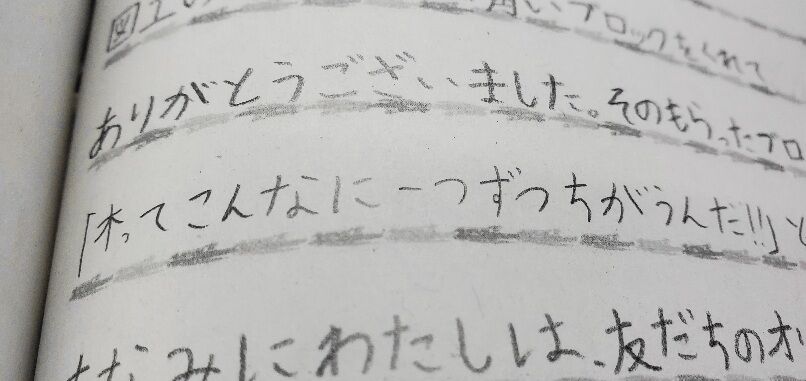 図工の 角いブロックをくれて
ありがとうございました。そのもらったブロ
「木ってこんなに一つずつちがうんだ!!」と
ちなみにわたしは、友だちのオ